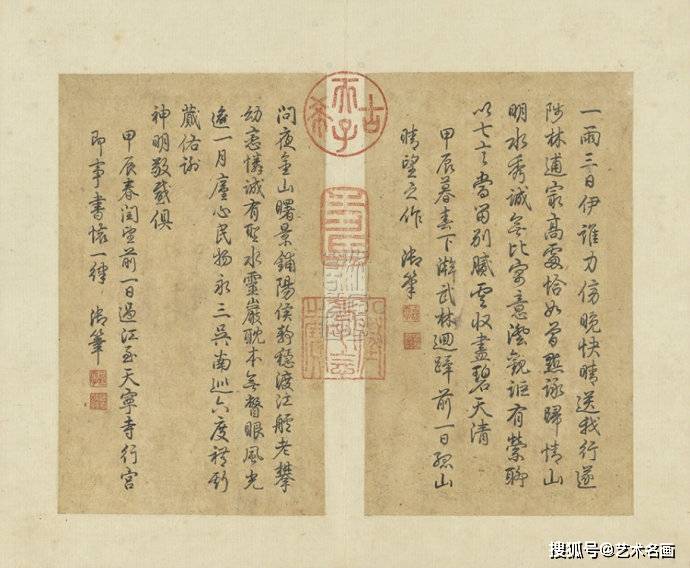 一雨三日伊誰力傍晚快晴送我行遂
陟林逋最高處恰如曾點詠歸情山
明水秀誠無比寄意澄觀詎有縈聊
以七言當留別膩雲收盡碧天清
甲辰暮春下澣武林迴蹕前一日孤山
晴望之作 御筆
古希天子
問夜金山曙景鋪陽侯靜穩渡江艫老攀
幼戀憐誠有水靈巖耽本無瞥眼風光
逾一月廑心民物永三吳南巡六度禮斯
蕆佑謝
神明敬感俱
甲辰春閏望前一日過江至天寧寺行宮
即事書懷一律 御筆
搜狐号@艺术名画